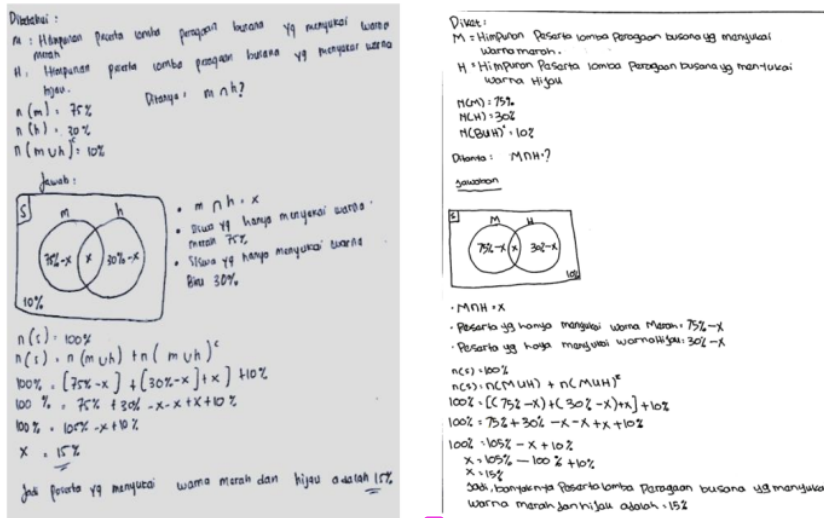 Diketahui :
M : Himpunan peserta lomba peragaan busana yg menyukai warna
merah
H : Himpunan peserta lomba peragaan busana yg menyukai warna
hijau.
Ditanya : m ∩ h?
n (m) : 75%
n (h) : 30%
n (m ∪ h)ᶜ : 10%
Jawab :
S
m h
75%-x x 30%-x
10%
• m ∩ h = x
• Siswa yg hanya menyukai warna
merah 75%
• Siswa yg hanya menyukai warna
Biru 30%.
n(s) = 100%
n(s) = n(m ∪ h) + n( m ∪ h)ᶜ
100% = [75%-x] + (30%-x] + x] + 10%
100 % = 75% + 30% -x-x+x+10%
100% = 105% -x+10%
x = 15%
Jadi peserta yg menyukai warna merah dan hijau adalah 15%
Diket :
M = Himpunan Peserta lomba Peragaan busana yg menyukai
warna merah.
H = Himpunan Peserta lomba Peragaan busana yg menyukai
warna Hijau
n(M) = 75%
n(H) = 30%
n(BUH)ᶜ = 10%
Ditanta : M∩H.?
Jawaban
S
M H
75%-x x 30%-x
10%
• M∩H = x
• Peserta yg hanya menyukai warna Merah = 75%-x
• Peserta yg haya menyukai warna Hijau = 30%-x
n(s) = 100%
n(s) = n(MUH) + n(MUH)ᶜ
100% = [(75%-x)+(30%-x)+x] + 10%
100% = 75% + 30% -x-x+x+10%
100% = 105% - x + 10%
x = 105% - 100% + 10%
x = 15%
Jadi, banyaknya Peserta lomba Peragaan busana yg menyuka
warna merah dan hijau adalah = 15%